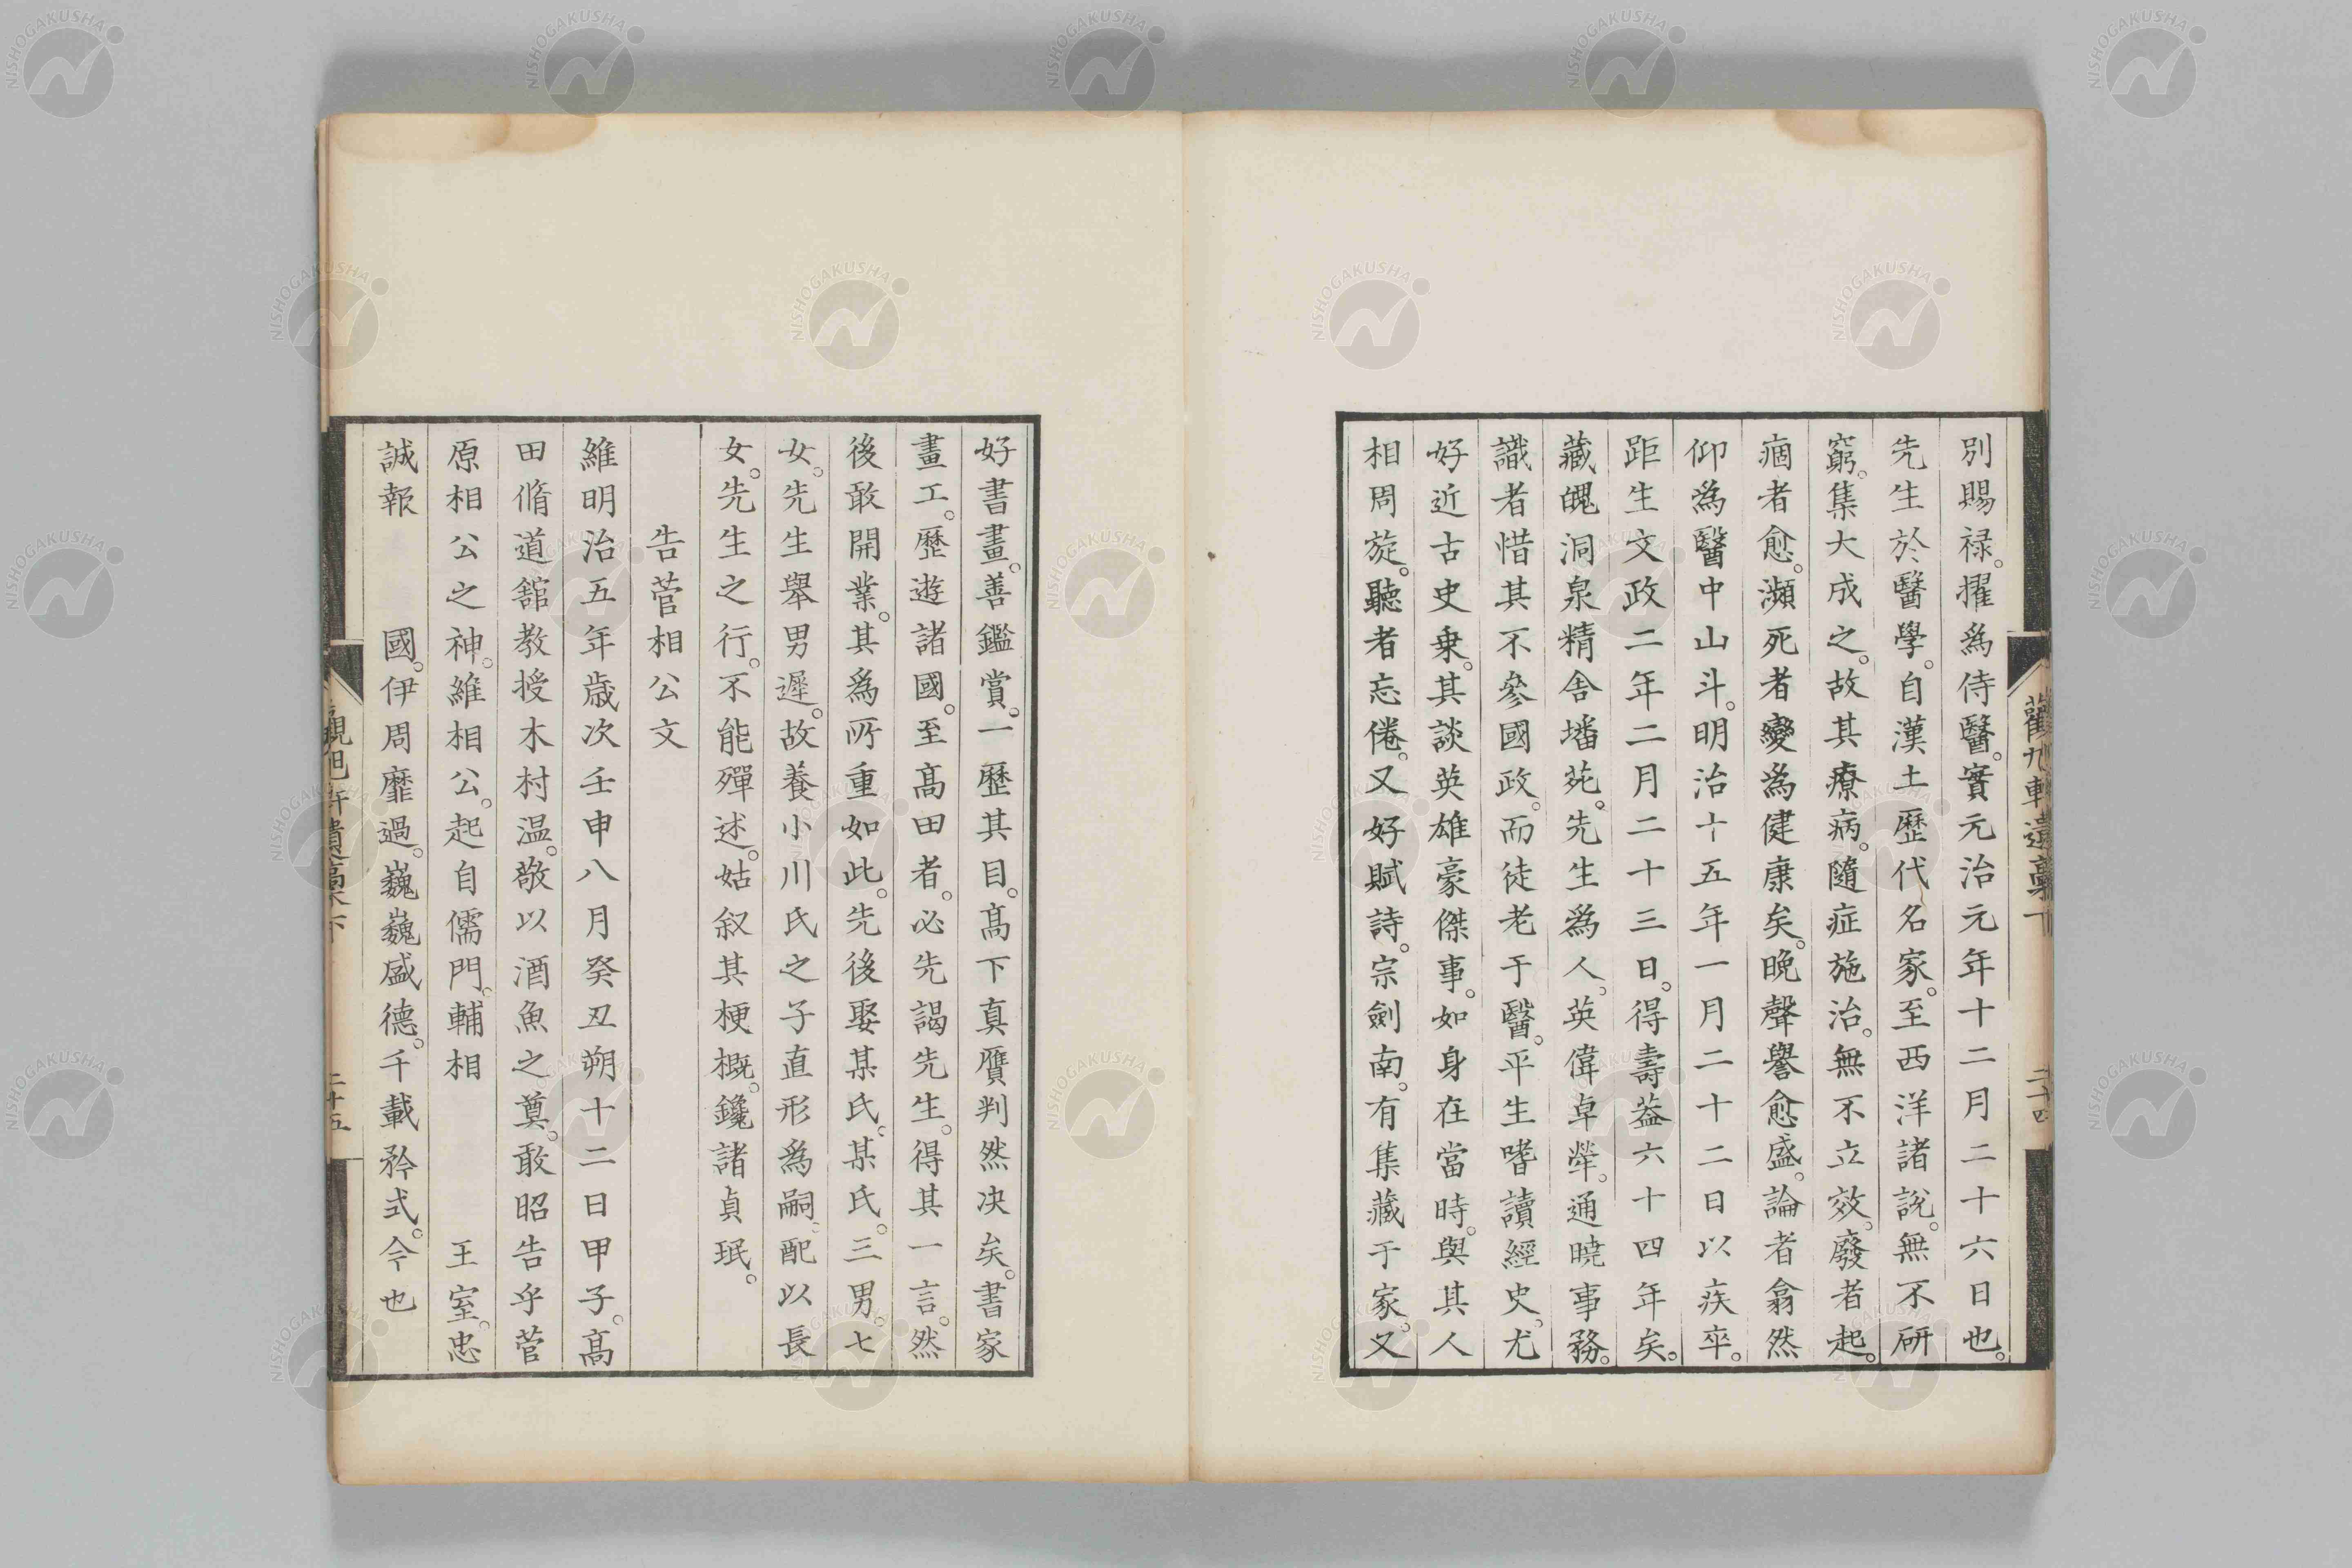 別賜禄。擢爲侍醫。實元治元年十二月二十六日也。
先生於醫學。自漢土歷代名家。至西洋諸說。無不研
窮。集大成之。故其療病。隨症施治。無不立效。廢者起。
痼者愈。瀕死者變爲健康矣。晩聲譽愈盛。論者翕然
仰爲醫中山斗。明治十五年一月二十二日以疾卒。
距生文政二年二月二十三日。得壽葢六十四年矣。
藏魄洞泉精舍墦茔。先生爲人。英偉卓犖。通曉事務。
識者惜其不參國政。而徒老于醫。平生嗜讀經史。尤
好近古史乗。其談英雄豪傑事。如身在當時。與其人
相周旋。聽者忘倦。又好賦詩。宗劍南。有集藏于家。又
觀旭軒遺稾下
二十四
好書畫。善鑑賞。一歷其目。髙下真贋判然决矣。書家
畫工。歷遊諸國。至髙田者。必先謁先生。得其一言。然
後敢開業。其爲所重如此。先後娶某氏某氏。三男七
女。先生舉男遲。故養小川氏之子直形爲嗣。配以長
女。先生之行。不能殫述。姑叙其梗概。鑱諸貞珉。
告菅相公文
維明治五年歳次壬申八月癸丑朔十二日甲子。髙
田脩道舘教授木村温。敬以酒魚之奠。敢昭告乎菅
原相公之神。維相公。起自儒門。輔相王室。忠
誠報國。伊周靡過。巍巍盛德。千載矜式。今也
觀旭軒遺稾下
二十五
NISHOGAKUSHA